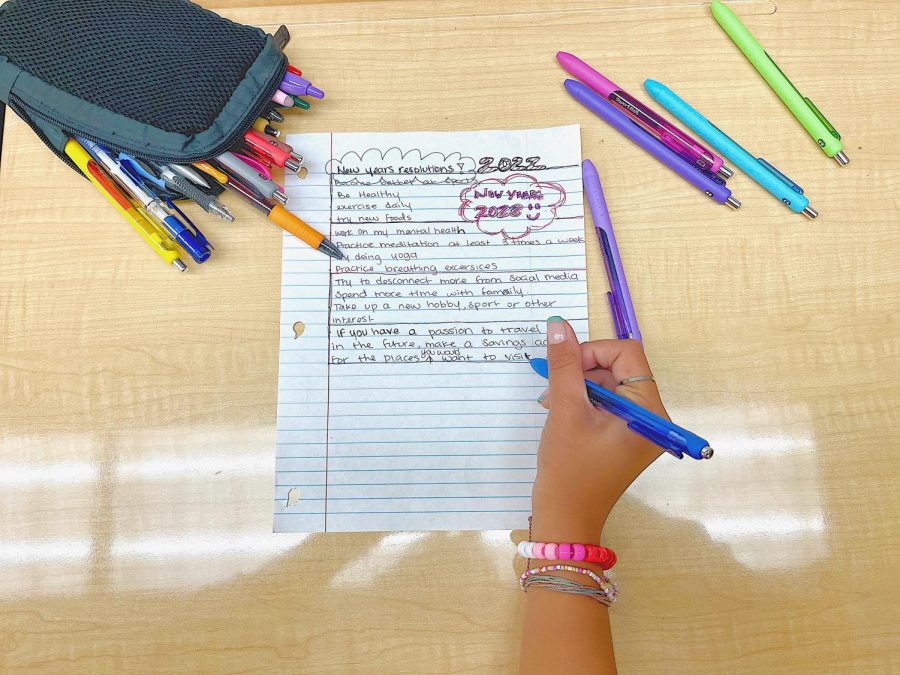 New years resolutions ? 2022
Become better at sports
New years
2022
Be Healthy
exercise daily
try new foods
work on my mental health
Practice meditation at least 3 times a week
doing yoga
Practice breathing excersices
Try to desconnect more from social media
Spend more time with family
Take up a new hobby, sport or other
interest
If you have a passion to travel
in the future, make a savings ac
for the places you want want to visit